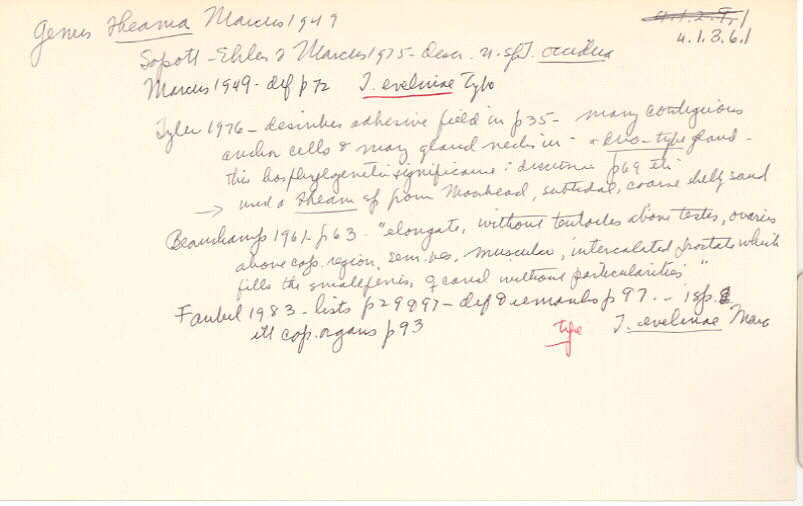 Genus Theama Marcus 1949
4.1.2.9.1
4.1.3.6.1
Sopott-Ehlers & Marcus 1975 - descr. n. sp. T. occidua
Marcus 1949 - def p 72 T. evelinae Type
Tyler 1976 - describes adhesive field in p 35 - many contiguous
anchor cells & many gland necks in - a duo-type gland -
this has phylogenetic significance: discussion p 69 etc
→ used a Theama sp from Morehead, subtidal, coarse shelly sand
Beauchamp 1961 - p 63. "elongate, without tentacles above testes, ovaries
above cop. region, sem. ves. muscular, intercalated prostate which
fills the small penis, ♀ canal without particularities"
Faubel 1983 - lists p 29 & 97 - def & remarks p 97 - 1 sp.
ill cop. organs p 93 type T. evelinae Marc